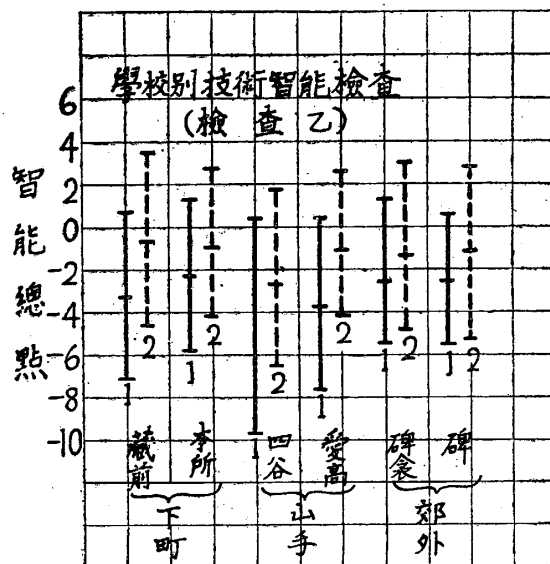 學校別技術智能檢査
(檢査乙)
智能總點
6
4
2
0
-2
-4
-6
-8
-10
1
2
1
2
1
2
1
2
1
2
1
2
蔵前
本所
四谷
愛高
碑衾
碑
下町
山手
郊外